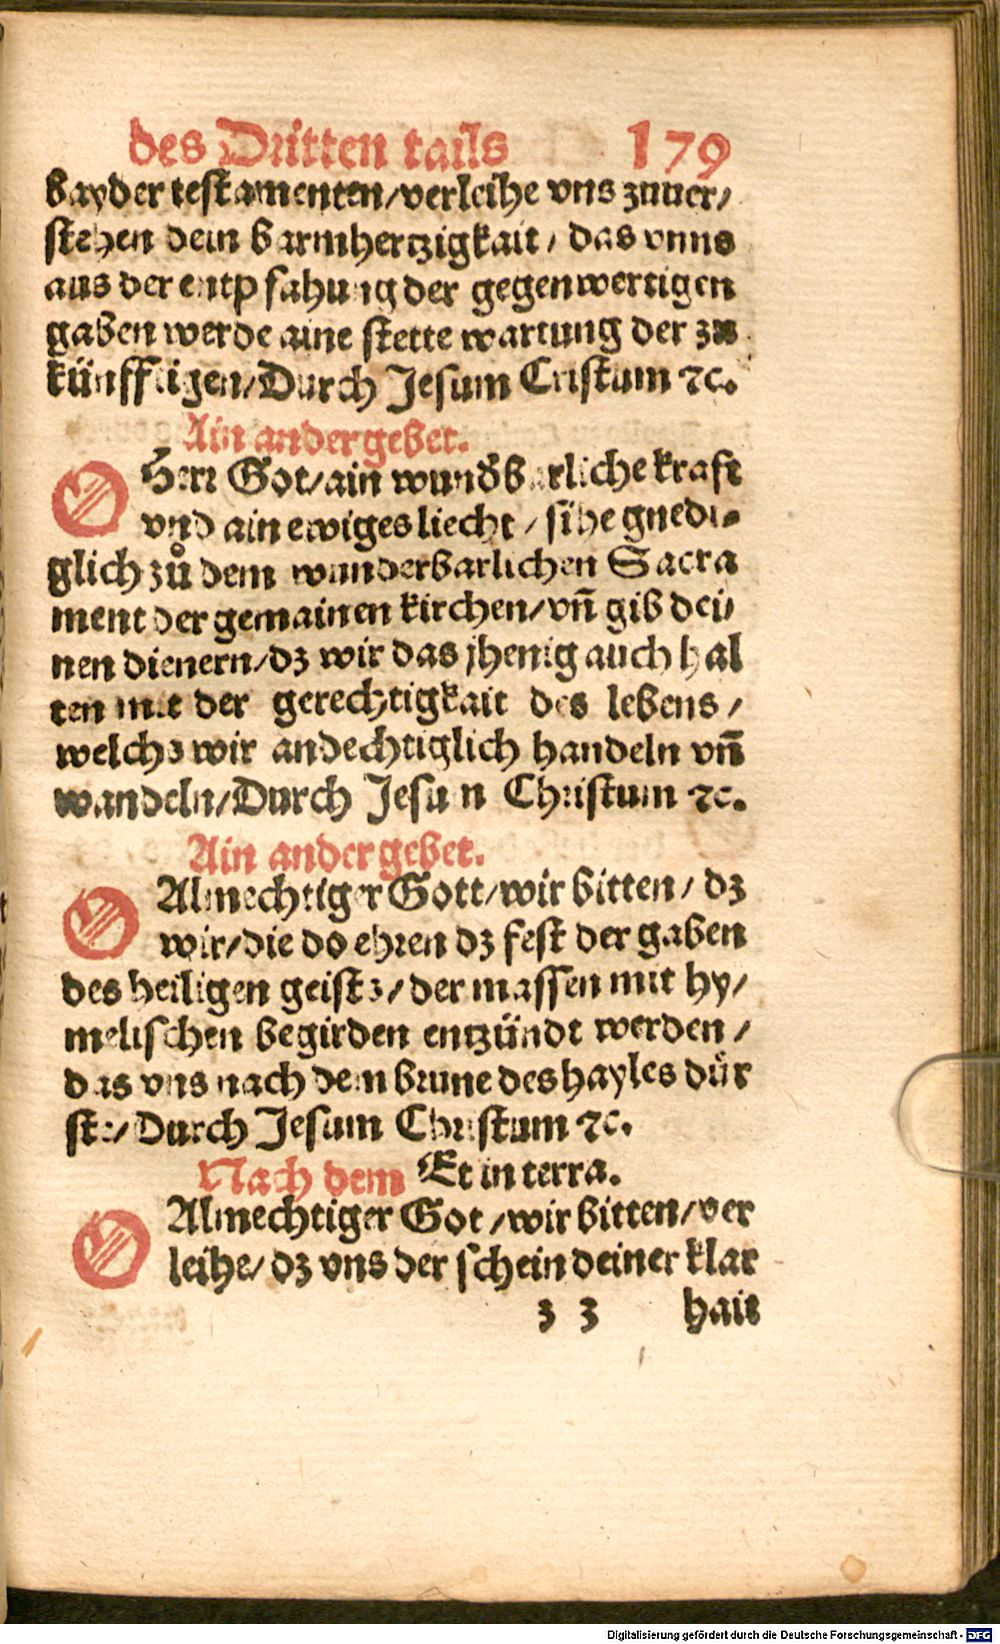 des Dritten tails 179
bayder testamenten/verleihe vns zuuer/
stehen dein barmhertzigkait/ das vnns
aus der entpfahung der gegenwertigen
gaben werde aine stette wartung der zu
künfftigen/Durch Jesum Cristum ⁊c.
Ain ander gebet.
O Herr Got/ain wundbarliche kraft
vnd ain ewiges liecht/sihe gnedi-
glich zů dem wunderbarlichen Sacra
ment der gemainen kirchen/vn̄ gib dei/
nen dienern/dz wir das jhenig auch hal
ten mit der gerechtigkait des lebens/
welchs wir andechtiglich handeln vn̄
wandeln/Durch Jesum Christum ⁊c.
Ain ander gebet.
O Almechtiger Gott/wir bitten/ dz
wir/die do ehren dz fest der gaben
des heiligen geists/der massen mit hy/
melischen begirden entzündt werden/
das vns nach dem brune des hayles dür
ste/Durch Jesum Christum ⁊c.
Nach dem Et in terra.
O Almechtiger Got/wir bitten/ver
leihe/dz vns der schein deiner klar
z 3 hait
Digitalisierung gefördert durch die Deutsche Forschungsgemeinschaft - DFG